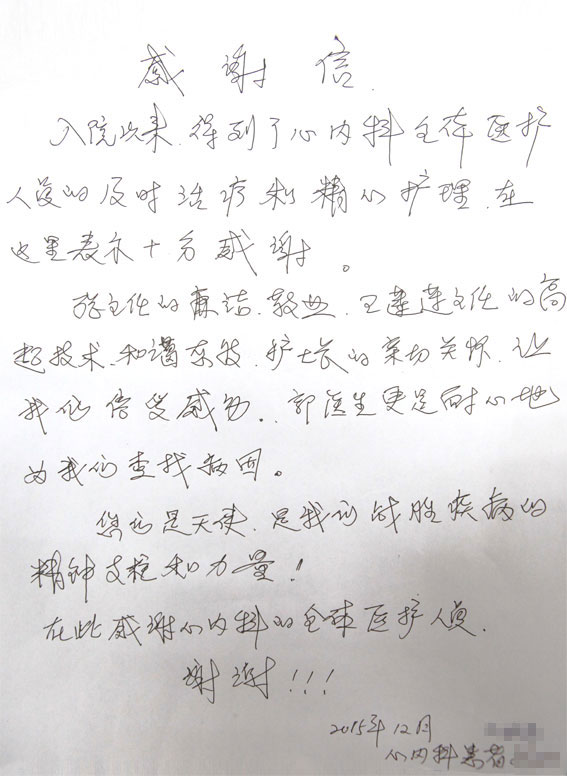 感谢信
入院以来,得到了心内科全体医护
人员的及时治疗和精心护理,在
这里表示十分感谢。
张主任的廉洁、敬业,王莲莲主任的高
超技术、和蔼,护士长的亲切关怀,让
我们倍受感动。郭医生更是耐心地
为我们查找病因。
您们是天使,是我们战胜疾病的
精神支柱和力量!
在此感谢心内科的全体医护人员。
谢谢!!!
2015年12月
心内科患者